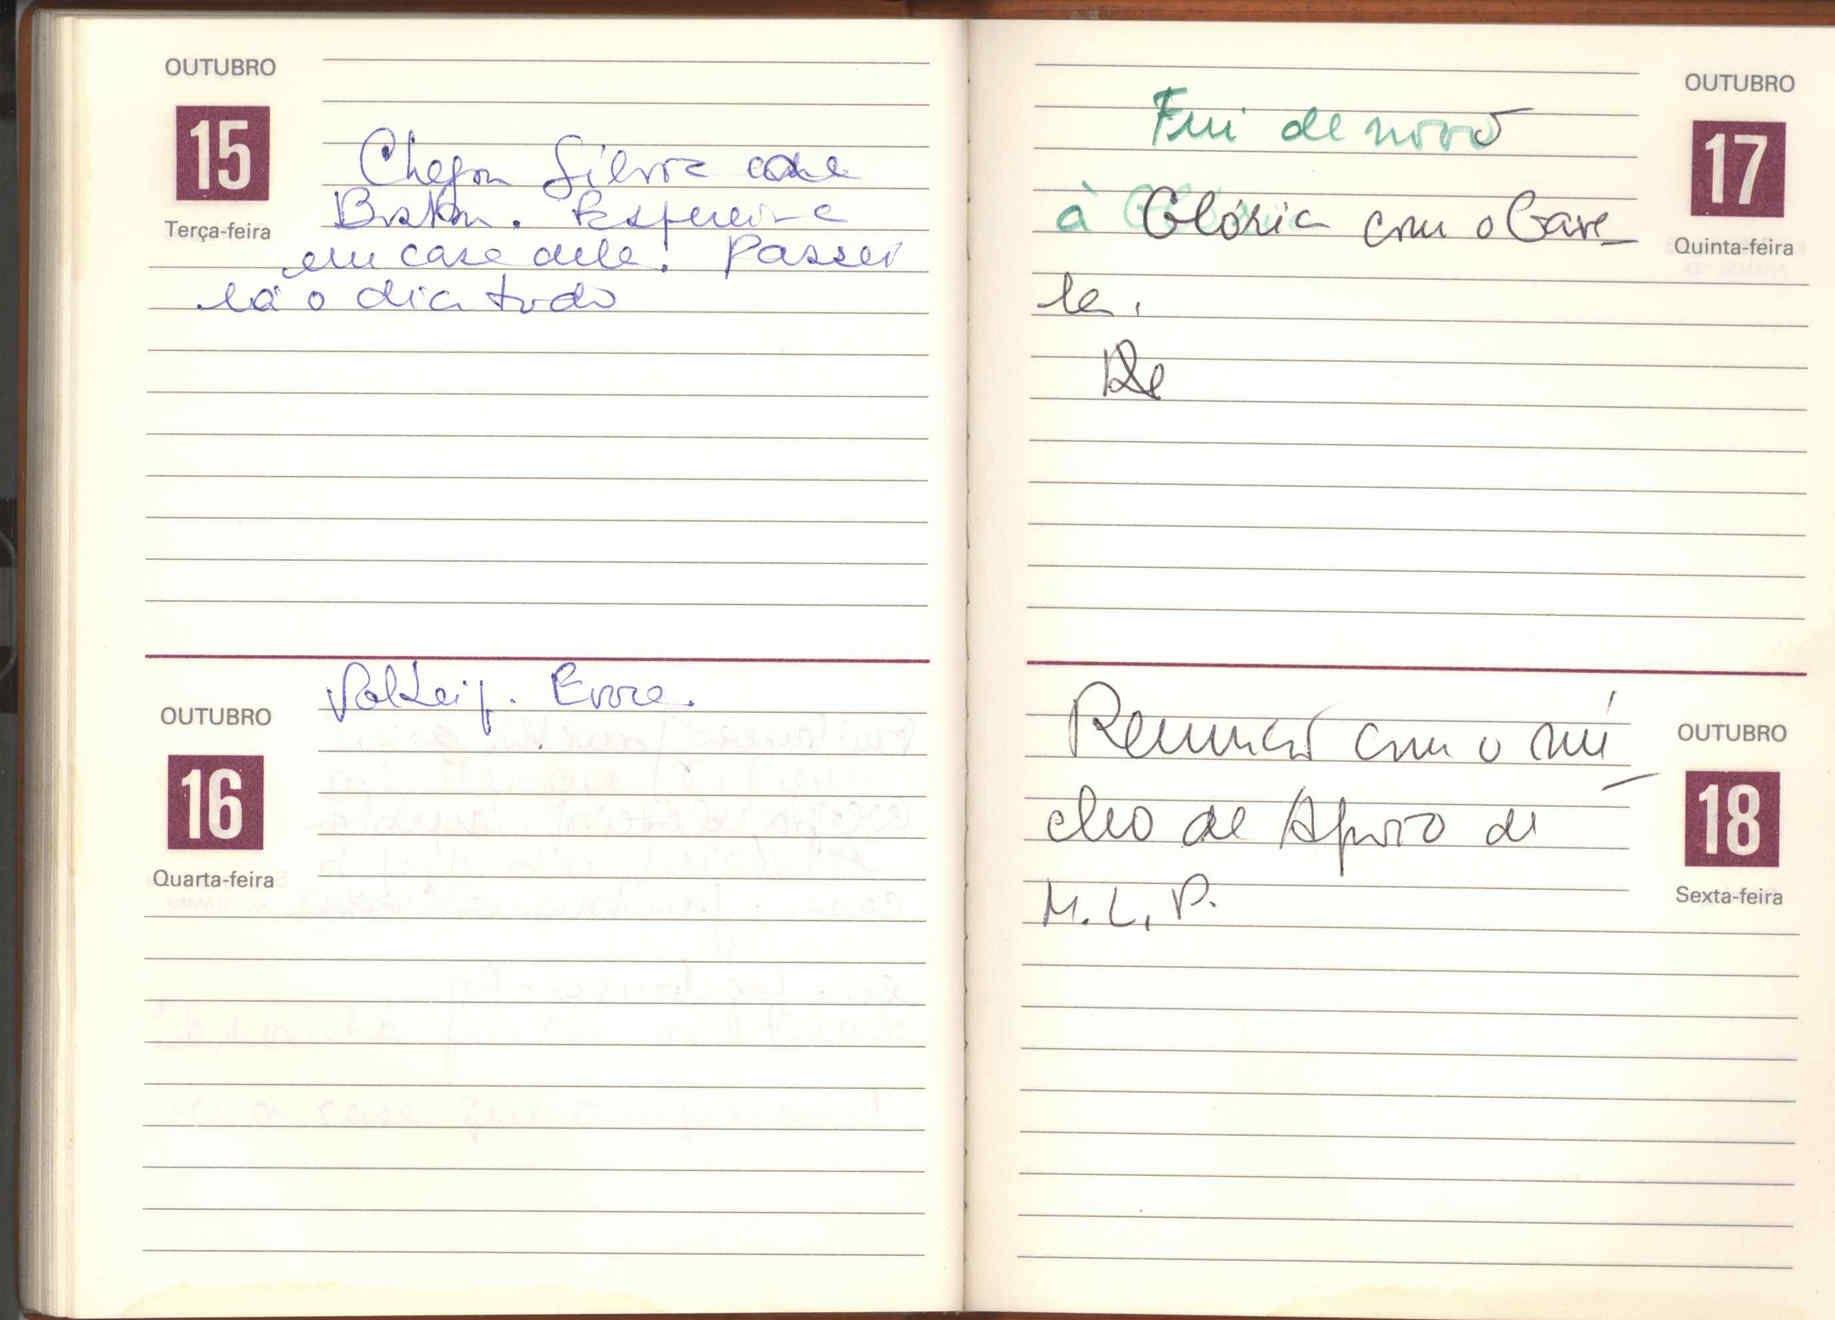 OUTUBRO
15
Terça-feira
Chegou Silvia
em casa dele! Passei
lá o dia todo
OUTUBRO
16
Quarta-feira
Voltei p. Evora.
OUTUBRO
17
Quinta-feira
Fui de novo
à Glória com o Gare_
la.
OUTUBRO
18
Sexta-feira
Reunião com o nú
cleo de Apoio de
M. L. P.